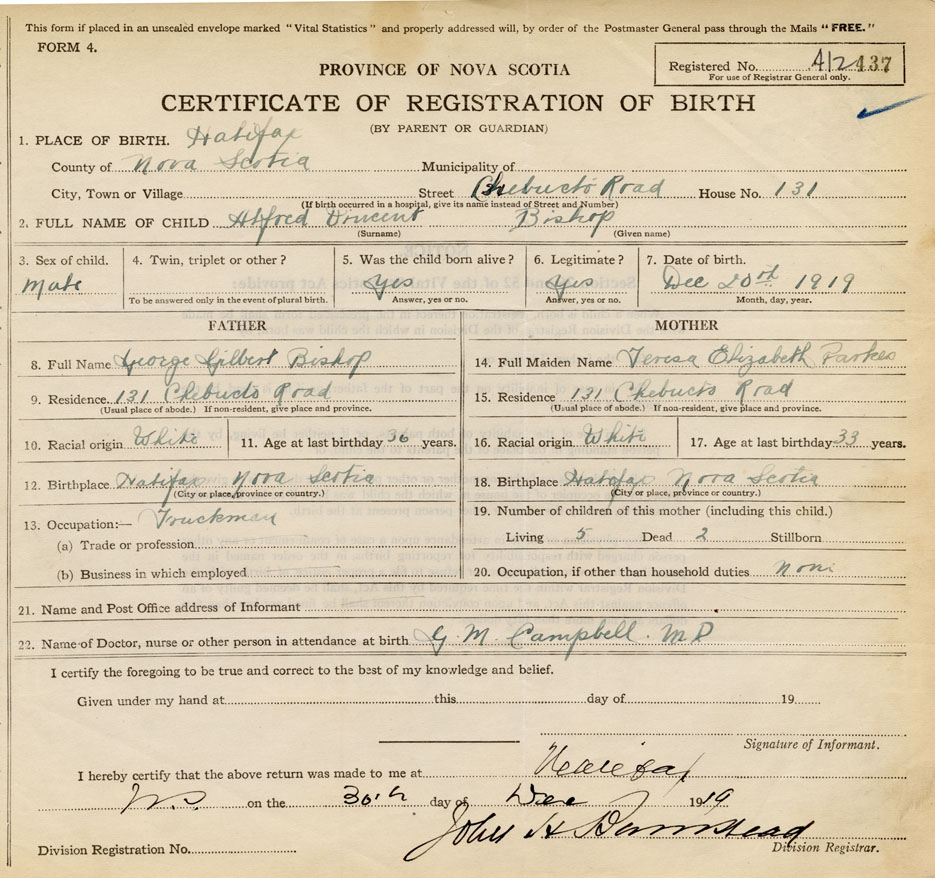 This form if placed in an unsealed envelope marked "Vital Statistics" and properly addressed will, by order of the Postmaster General pass through the Mails "FREE."
FORM 4.
Registered No. 412 437
For use of Registrar General only.
PROVINCE OF NOVA SCOTIA
CERTIFICATE OF REGISTRATION OF BIRTH
(BY PARENT OR GUARDIAN)
1. PLACE OF BIRTH. Halifax
County of Nova Scotia Municipality of
City, Town or Village Street Chebucto Road House No. 131
(If birth occurred in a hospital, give its name instead of Street and Number)
2. FULL NAME OF CHILD Alfred Vincent Bishop
(Surname) (Given name)
3. Sex of child. 4. Twin, triplet or other? 5. Was the child born alive? 6. Legitimate? 7. Date of birth?
Male Yes Yes Dec 20rd 1919
To be answered only in the event of plural birth. Answer, yes or no. Answer, yes or no. Month, day, year.
FATHER MOTHER
8. Full Name George Gilbert Bishop 14. Full Maiden Name Teresa Elizabeth Parkes
9. Residence 131 Chebucto Road 15. Residence 131 Chebucto Road
(Usual place of abode.) If non-resident, give place and province. (Usual place of abode.) If non-resident, give place and province.
10. Racial origin White 11. Age at last birthday 36 years. 16. Racial origin White 17. Age at last birthday 33 years.
12. Birthplace Halifax Nova Scotia 18. Birthplace Halifax Nova Scotia
(City or place, province or country.) (City or place, province or country.)
13. Occupation:— Truckman 19. Number of children of this mother (including this child.)
(a) Trade or profession Living 5 Dead 2 Stillborn
(b) Business in which employed 20. Occupation, if other than household duties None
21. Name and Post Office address of Informant
22. Name of Doctor, nurse or other person in attendance at birth G. M. Campbell. M D
I certify the foregoing to be true and correct to the best of my knowledge and belief.
Given under my hand at this day of 19
Signature of Informant.
I hereby certify that the above return was made to me at Halifax
N.S on the 30th day of Dec 1919
John H Barnstead
Division Registration No. Division Registrar.